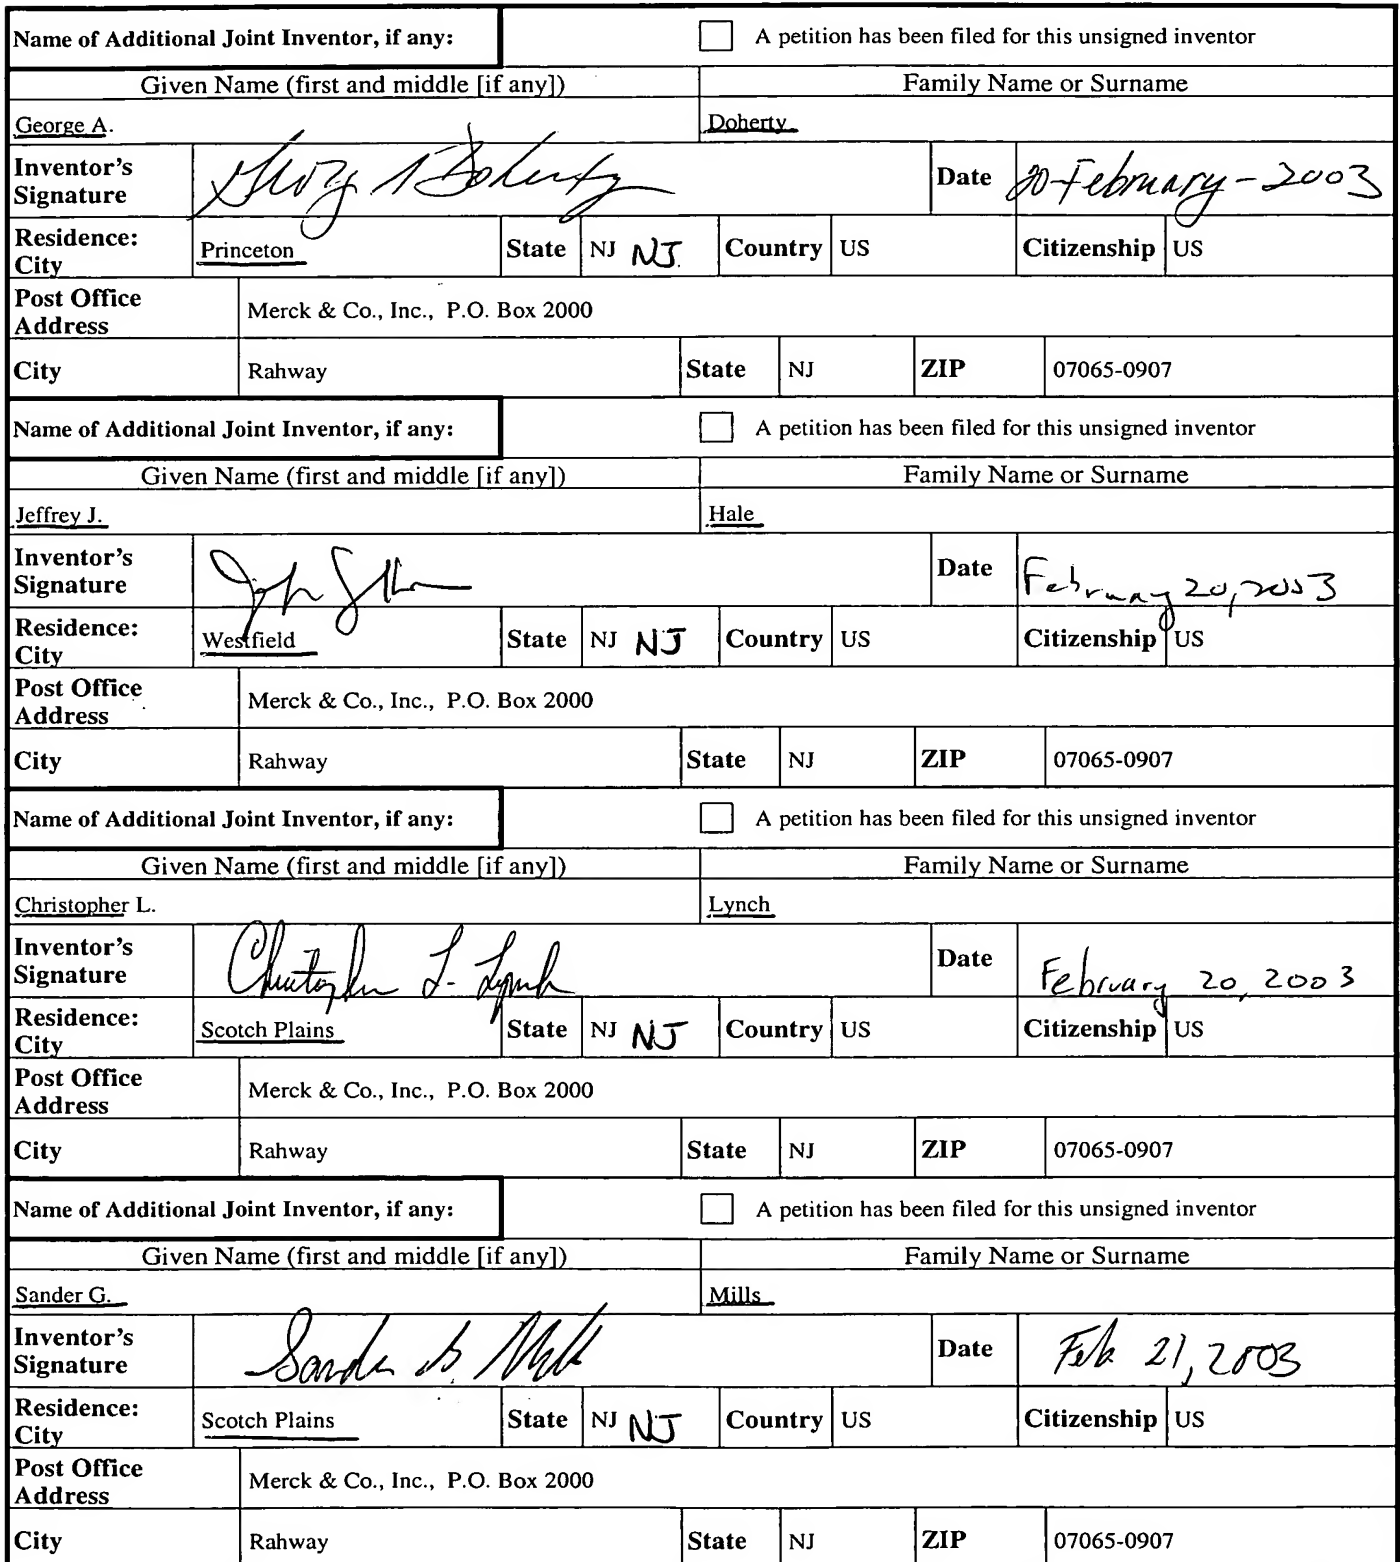 Name of Additional Joint Inventor, if any: A petition has been filed for this unsigned inventor
Given Name (first and middle [if any]) Family Name or Surname
George A. Doherty
Inventor's Signature George A Doherty Date 20-February-2003
Residence: City Princeton State NJ NJ. Country US Citizenship US
Post Office Address Merck & Co., Inc., P.O. Box 2000
City Rahway State NJ ZIP 07065-0907
Name of Additional Joint Inventor, if any: A petition has been filed for this unsigned inventor
Given Name (first and middle [if any]) Family Name or Surname
Jeffrey J. Hale
Inventor's Signature Date February 20, 2003
Residence: City Westfield State NJ NJ Country US Citizenship US
Post Office Address Merck & Co., Inc., P.O. Box 2000
City Rahway State NJ ZIP 07065-0907
Name of Additional Joint Inventor, if any: A petition has been filed for this unsigned inventor
Given Name (first and middle [if any]) Family Name or Surname
Christopher L. Lynch
Inventor's Signature Christopher L. Lynch Date February 20, 2003
Residence: City Scotch Plains State NJ NJ Country US Citizenship US
Post Office Address Merck & Co., Inc., P.O. Box 2000
City Rahway State NJ ZIP 07065-0907
Name of Additional Joint Inventor, if any: A petition has been filed for this unsigned inventor
Given Name (first and middle [if any]) Family Name or Surname
Sander G. Mills
Inventor's Signature Sander G. Mills Date Feb 21, 2003
Residence: City Scotch Plains State NJ NJ Country US Citizenship US
Post Office Address Merck & Co., Inc., P.O. Box 2000
City Rahway State NJ ZIP 07065-0907